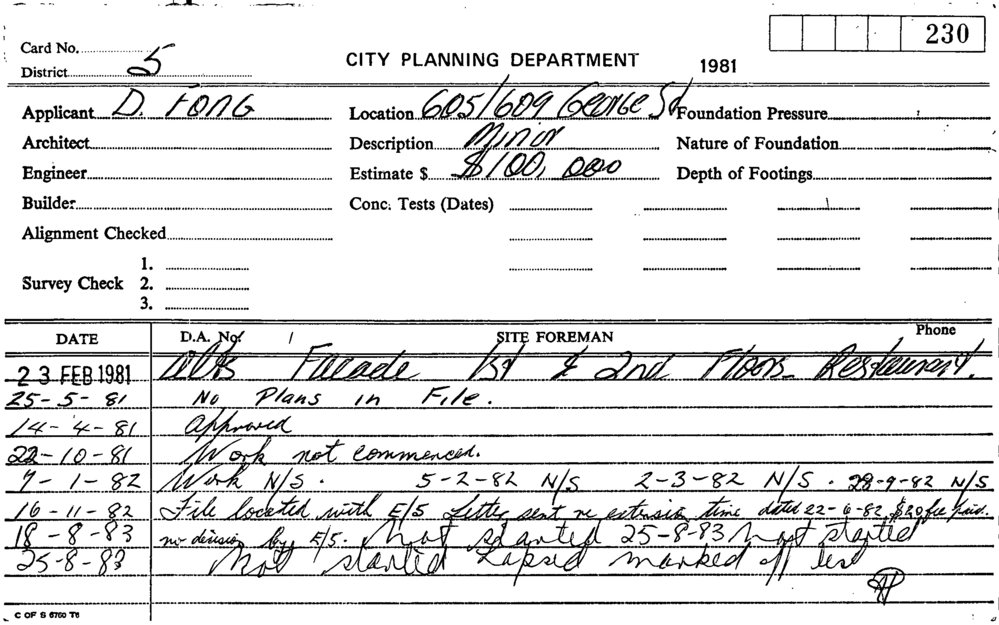 230
Card No.
District 5
CITY PLANNING DEPARTMENT 1981
Applicant D. FONG Location 605/609 George St Foundation Pressure
Architect Description Minor Nature of Foundation
Engineer Estimate $ $100,000 Depth of Footings
Builder Conc. Tests (Dates)
Alignment Checked
Survey Check 1.
2.
3.
DATE D.A. No. SITE FOREMAN Phone
23 FEB 1981 Alts Facade 1st & 2nd Floors Restaurant.
25-5-81 No Plans in File.
14-4-81 Approved
22-10-81 Work not commenced.
7-1-82 Work N/S. 5-2-82 N/S 2-3-82 N/S. 28-9-82 N/S
16-11-82 File located with E/S Letter sent re extension time dated 22-6-82, $20 fee paid.
18-8-83 no decision by E/S. Not started 25-8-83 Not started
25-8-83 Not started Lapsed marked off list
C OF S 6760 T6